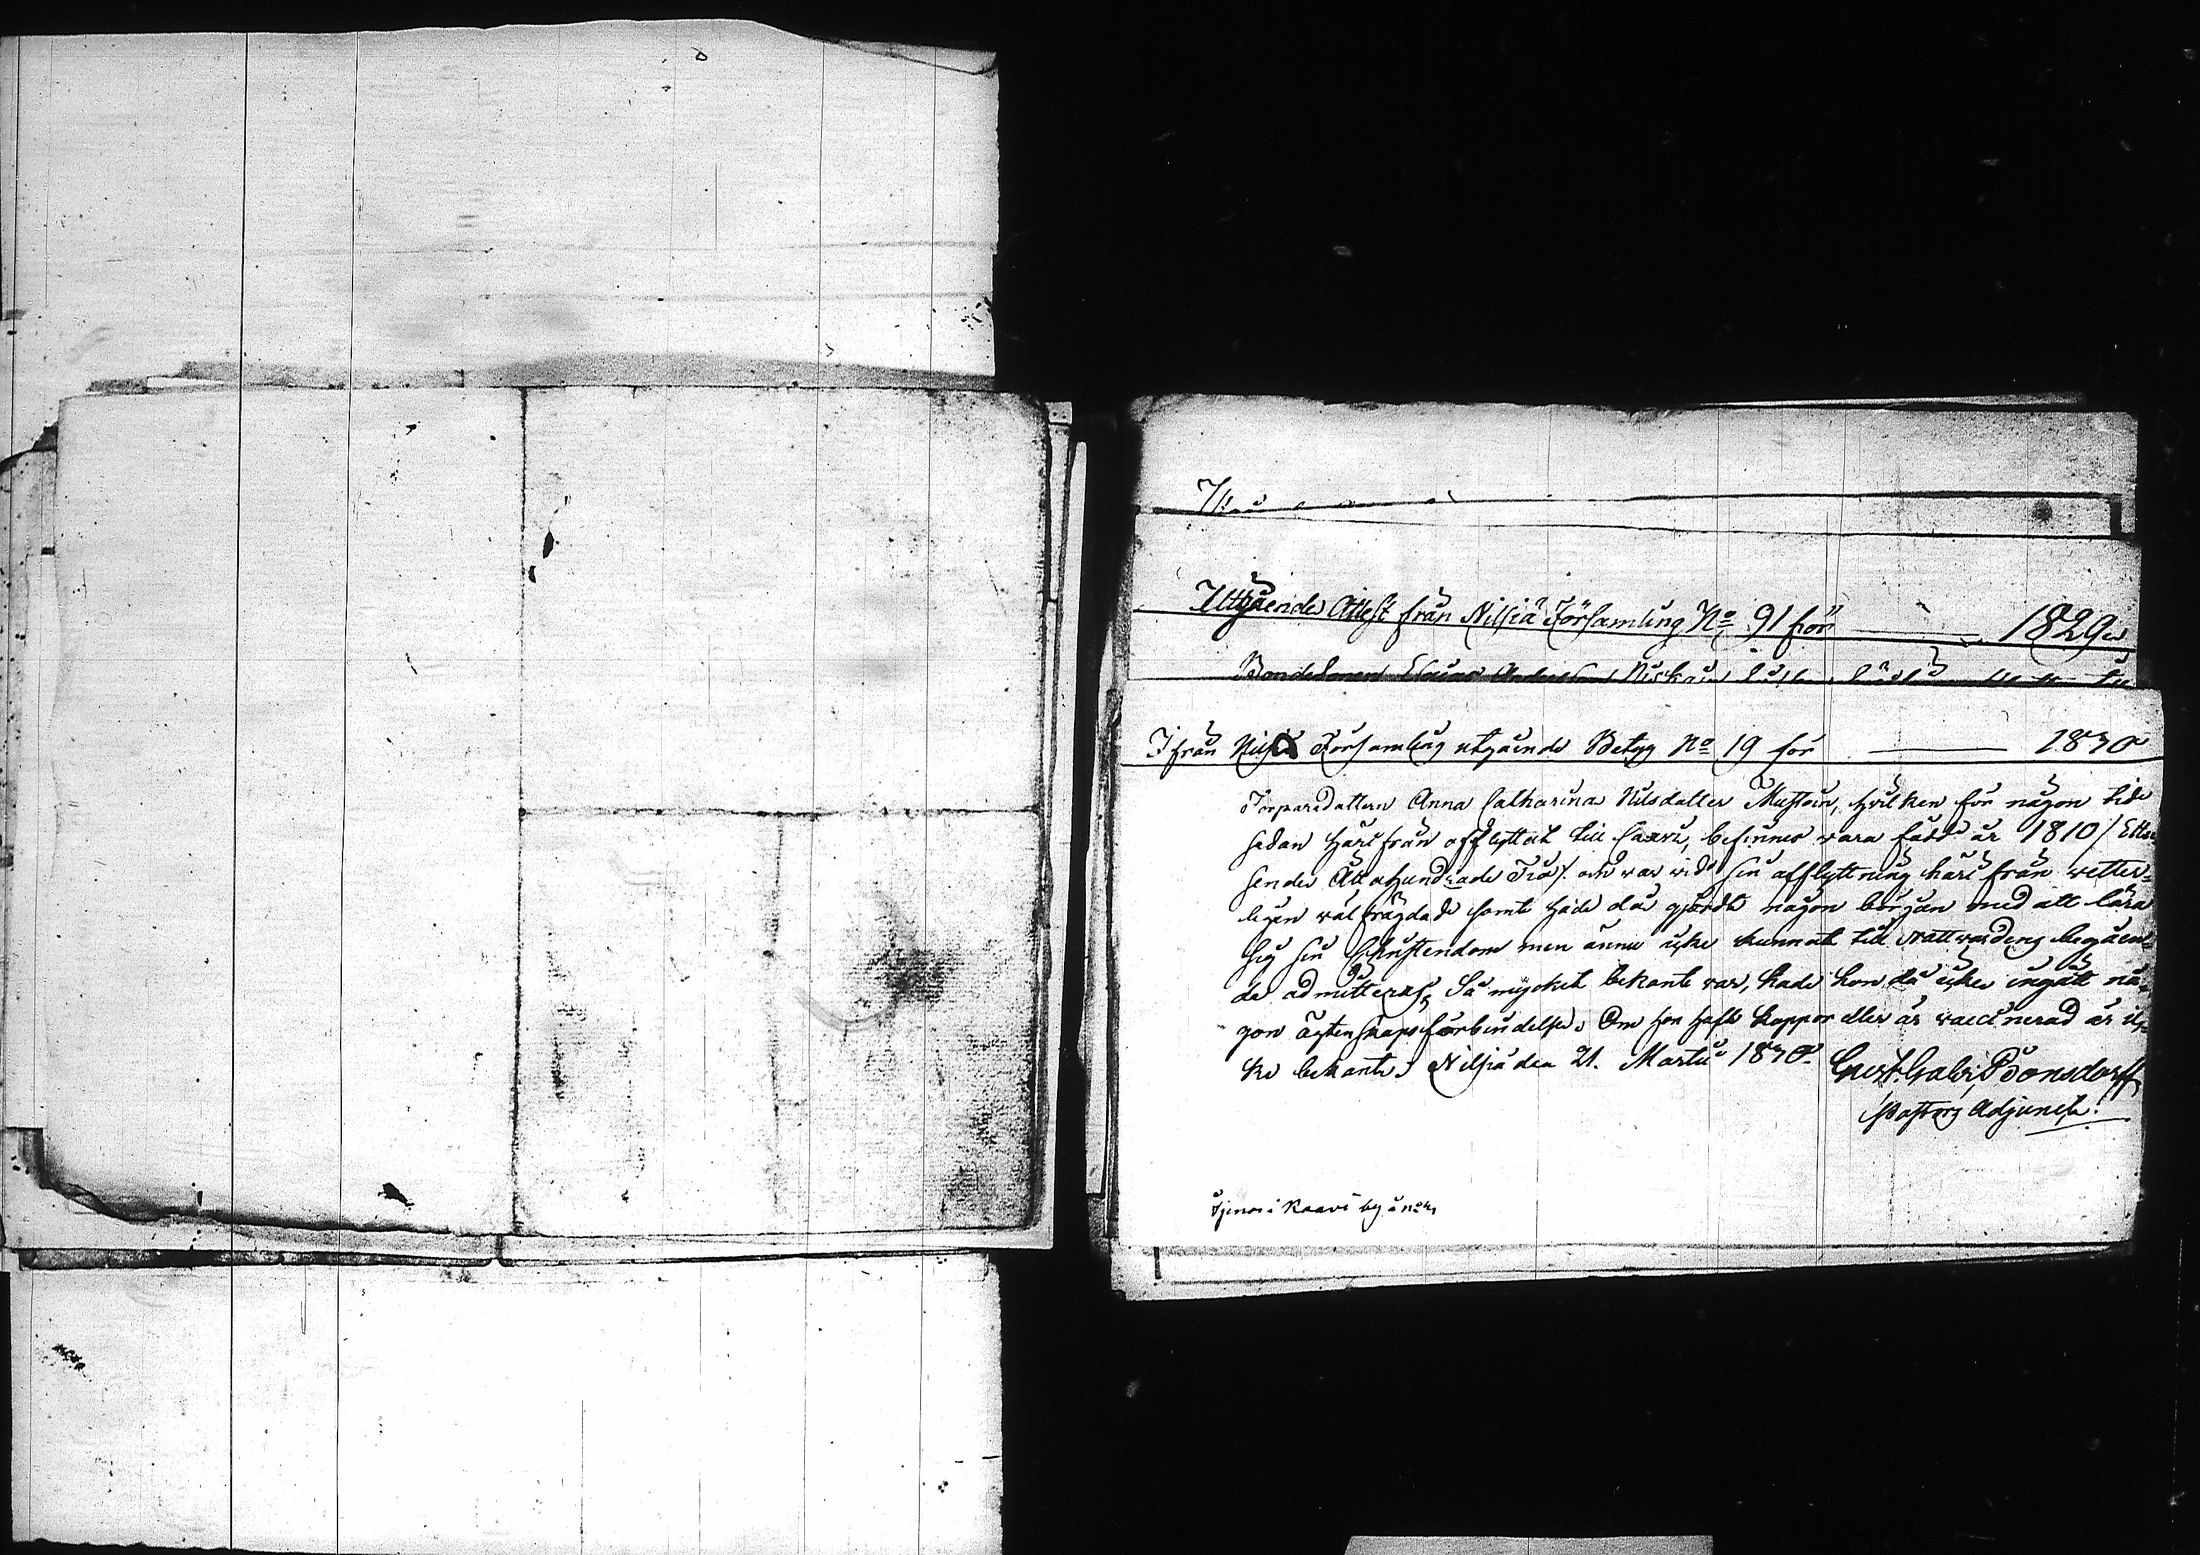 Utgående Attest från Nilsiä Församling No 91 för 1829
Bondesonen Anders
Ifrån Nilsiä Församling utgående Betyg No 19 för 1830
Torparedottern Anna Catharina Nilsdotter Mustoin, hvilken för någon tid
sedan härifrån afflyttat till Caavi, befinnes wara född år 1810 / Etttu-
sende Åttahundrade Tio /. och war wid sin afflyttning härifrån wetter-
ligen wälfrägdad samt hade då gjordt någon början med att lära
sig sin Christendom men ännu icke kunnat till Nattwardens begåen-
de admitteras, Så mycket bekant war, hade hon då icke ingått nå-
gon ägtenskapsförbindelse. Om hon haft koppor eller är vaccinerad är ic-
ke bekant. Nilsiä den 21. Martii 1830.
Gust. Gabr. Bonsdorff
Pastors Adjunct.
Tjenar i Kaavi by å No